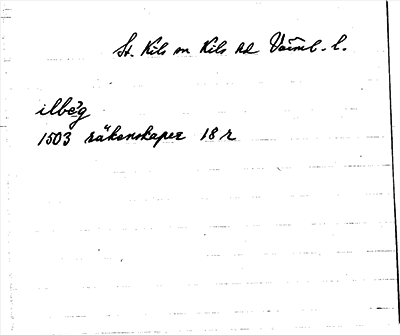 St. Kils sn Kils hd Värml. l.
ilbe?g
1503 räkenskaper 18 r